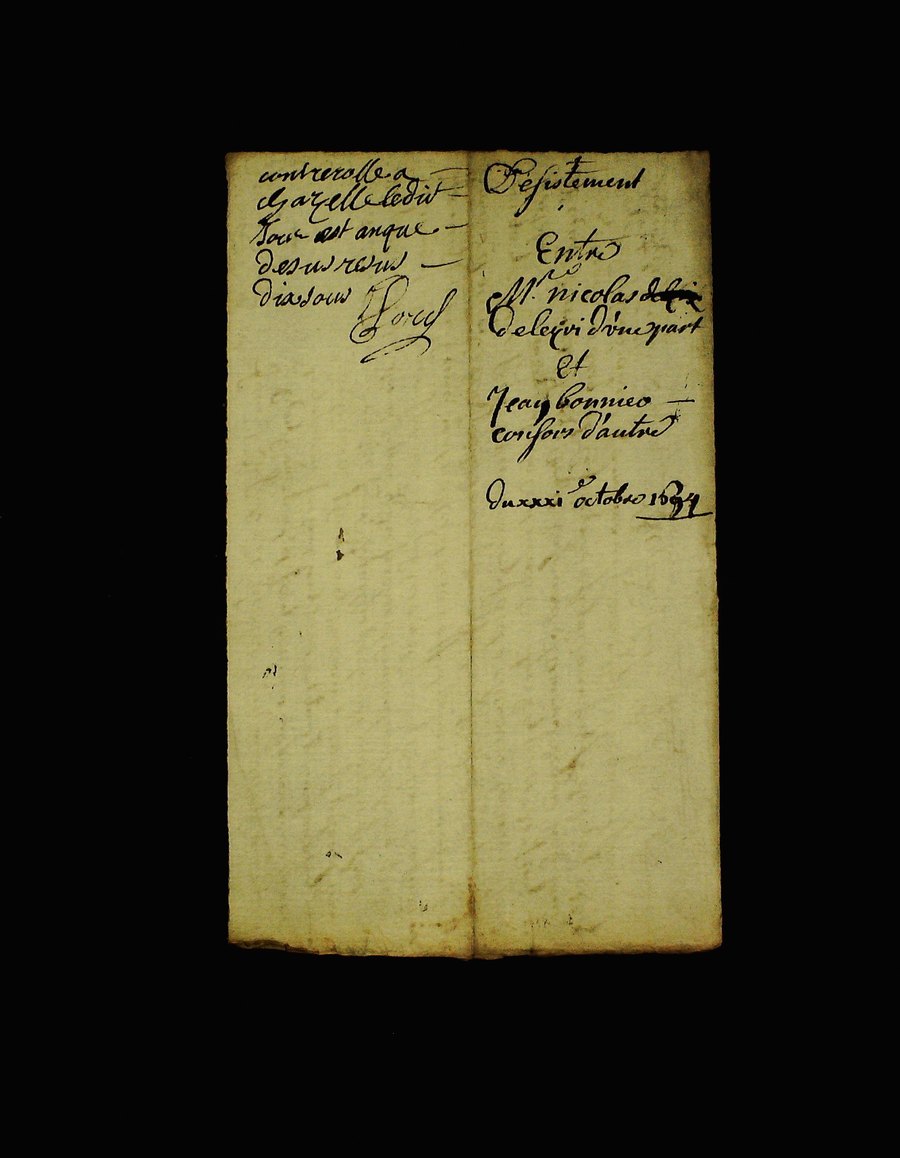 controrolle a
chazelle ledit
Jour est an que
desus resus
dix sous
Désistement
Entre
Mre nicolas
d'une part
Et
Jean bonnieo
consors d'autre
du xxxie octobre 1694